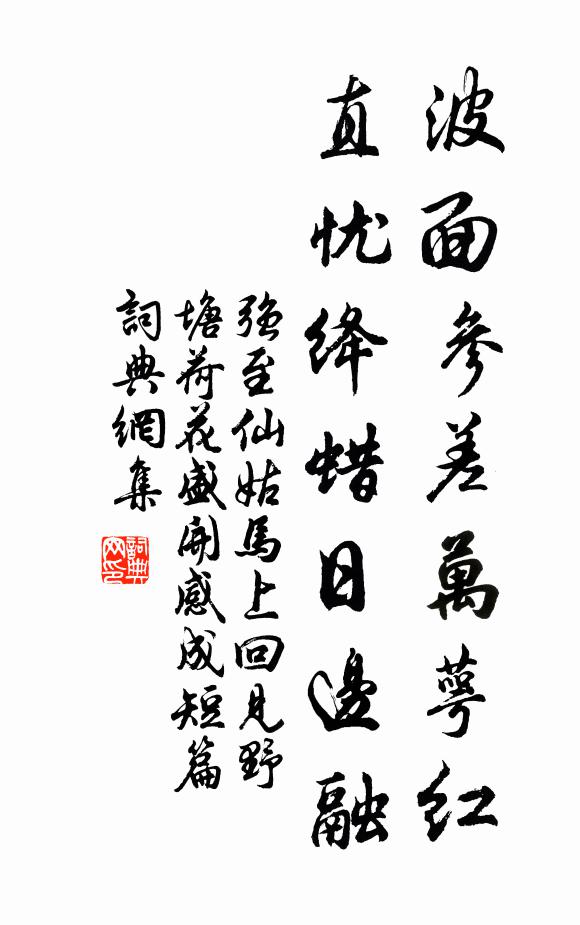 波面參差萬萼紅
直忧絳蜡日邊融
強至仙姑馬上回見野
塘荷花盛開感成短篇
詞典網集
詞典
网印